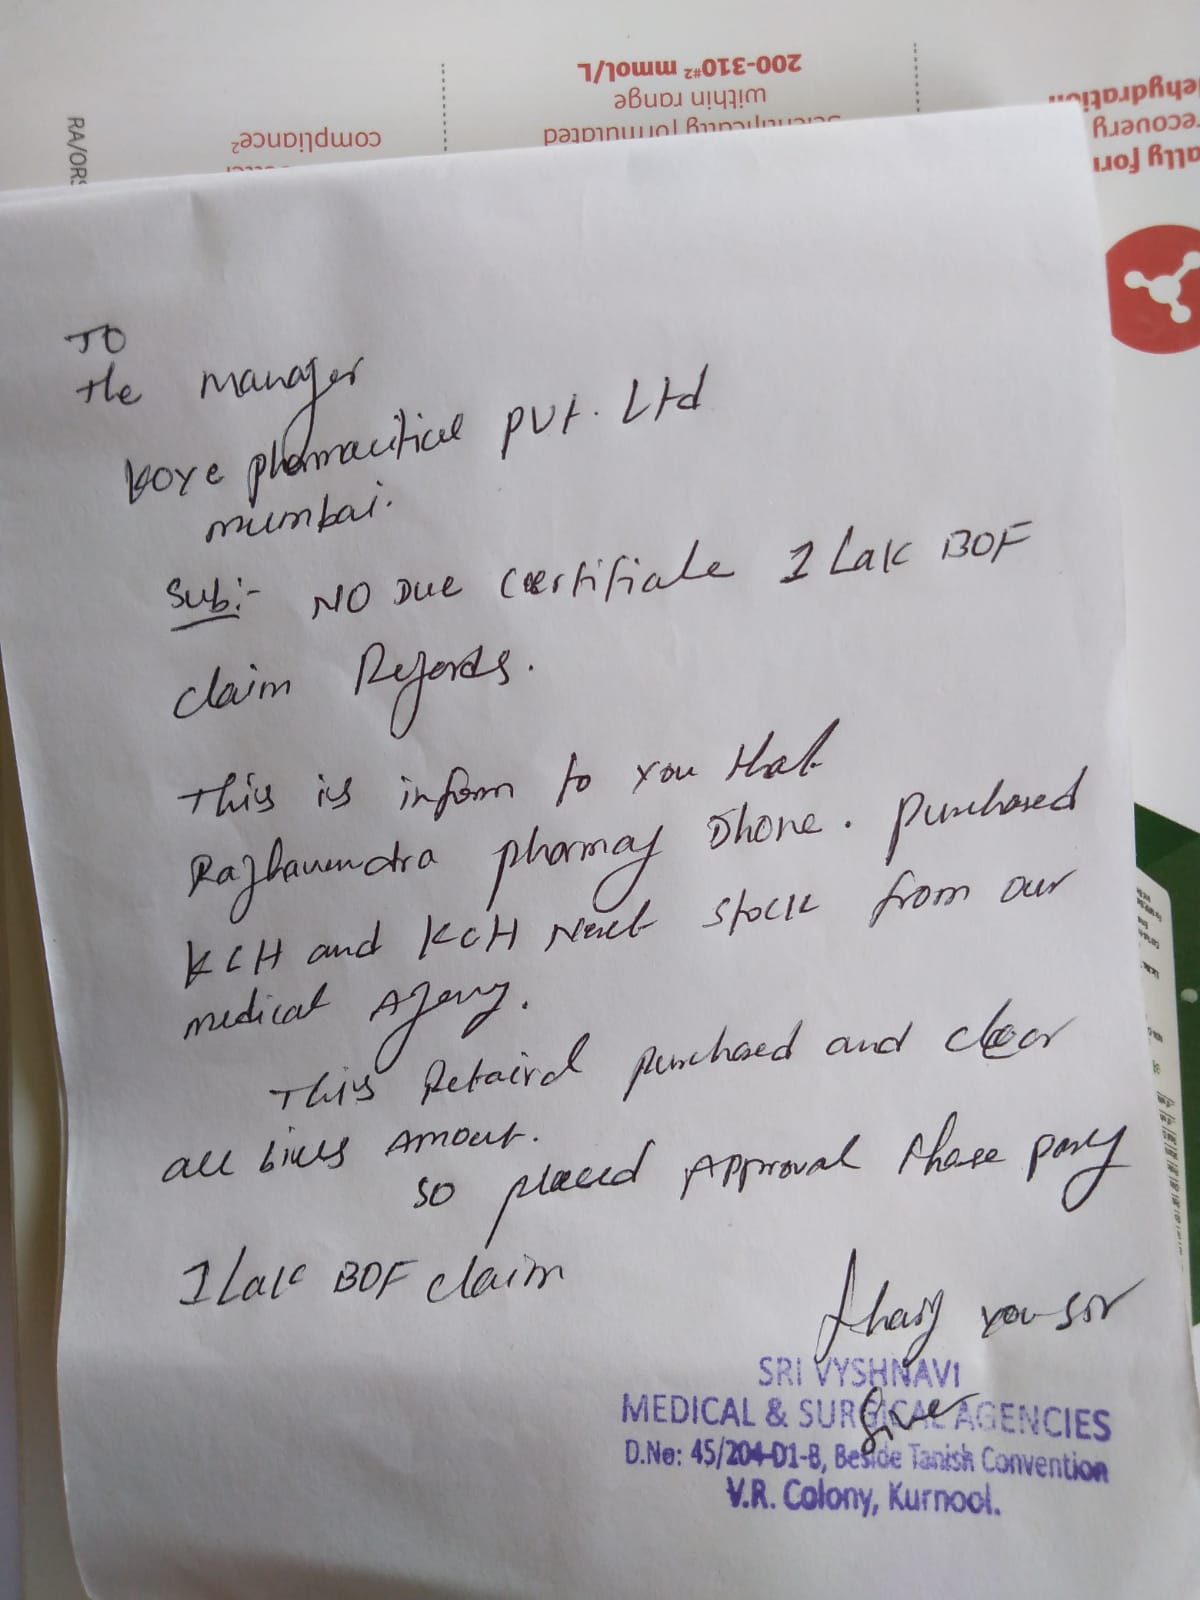 RA/ORS
compliance²
Scientifically formulated
within range
200-310#2 mmol/L
recovery
To
the manager
Koye phamacitical pvt. Ltd
mumbai.
Sub:- NO Due Certifiate 1 Lak BOF
claim Regards.
This is inform to you that
Raghavendra pharmay Dhone. purchased
KCH and KCH Next stock from our
medical Agency.
This Retairal purchased and clear
all bills Amout.
so placed Approval those party
1 Lak BOF claim
thang you sir
SRI VYSHNAVI
MEDICAL & SURGICAL AGENCIES
D.No: 45/204-D1-B, Beside Tanish Convention
V.R. Colony, Kurnool.